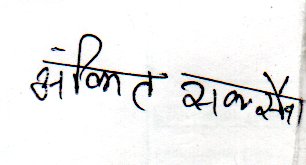 अंकित सक्सैना